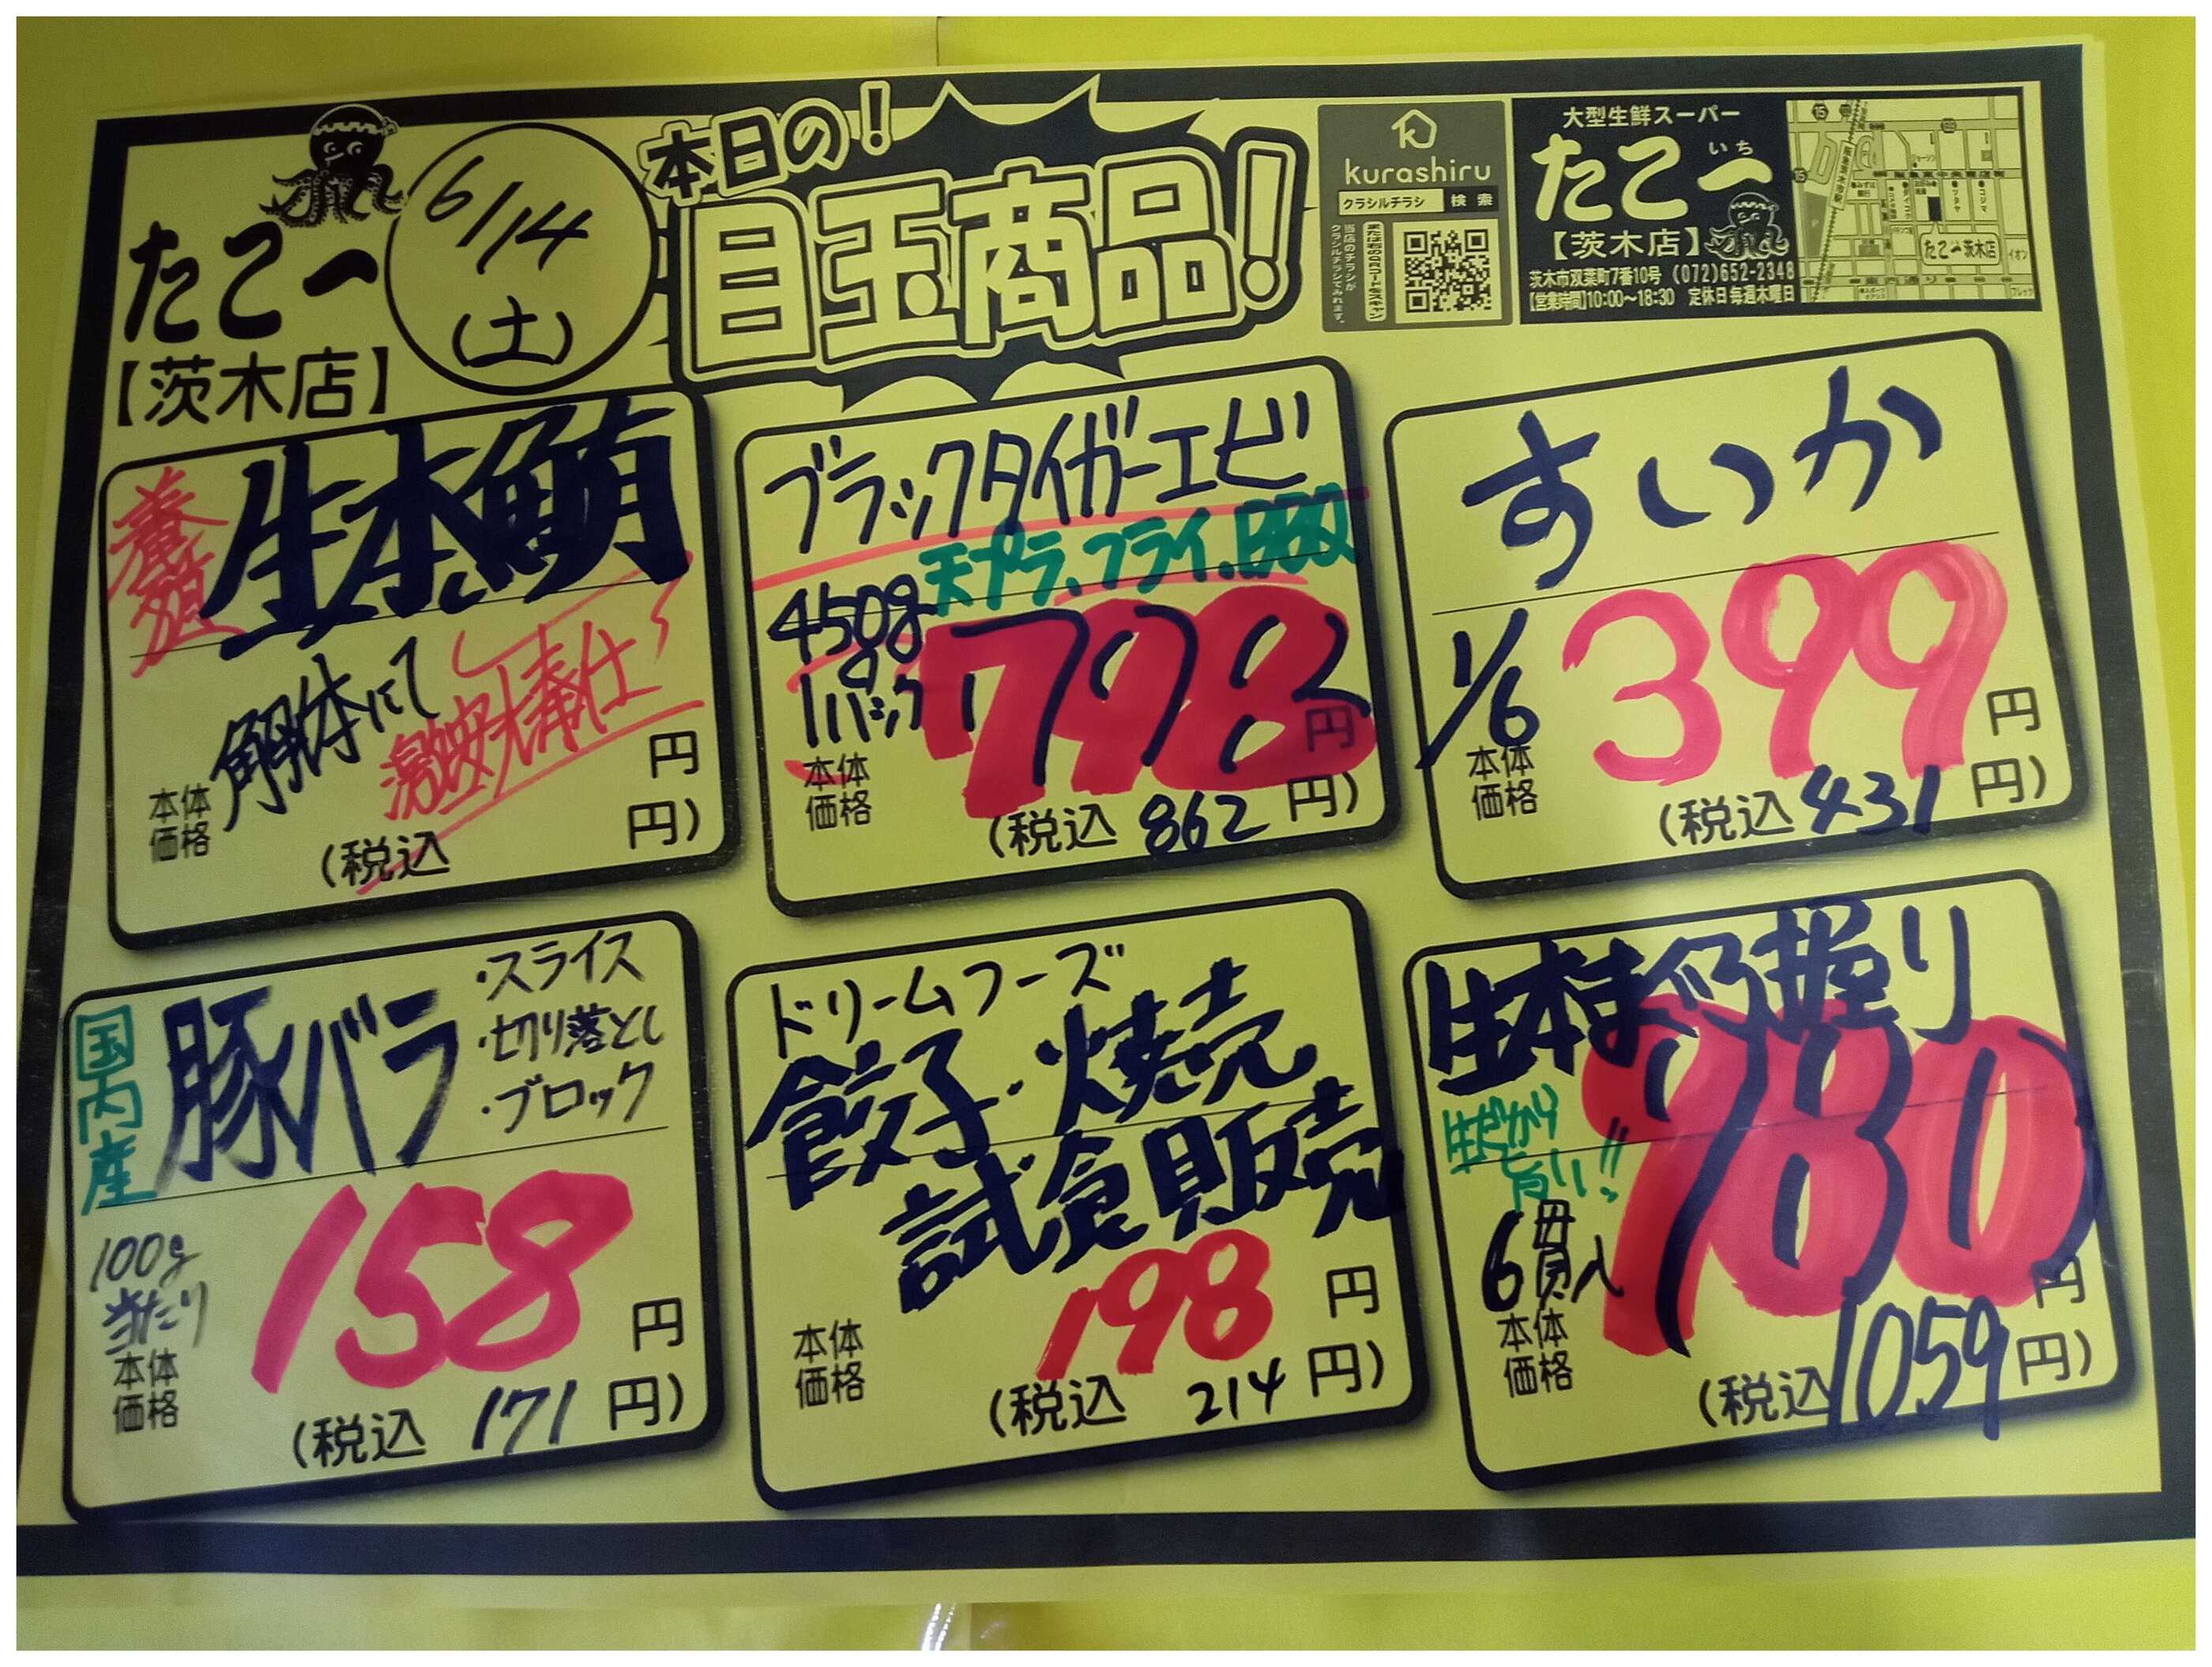 たこ一
【茨木店】
6/14
(土)
本日の!
目玉商品!
kurashiru
クラシルチラシ 検索
当店のチラシが
クラシルチラシでみれます。
または右のQRコードをスキャン
大型生鮮スーパー
たこ一
いち
【茨木店】
茨木市双葉町7番10号 (072)652-2348
【営業時間】10:00〜18:30 定休日毎週木曜日
たこ一茨木店
イオン
コジマ
養殖
生本鮪
解体にて
激安大奉仕
本体
価格
円
(税込 円)
ブラックタイガーエビ
天プラ、フライ、BBQ
450g
1パック
798
円
本体
価格
(税込 862 円)
すいか
1/6
399
円
本体
価格
(税込 431 円)
国内産
豚バラ
・スライス
・切り落とし
・ブロック
100g
当たり
158
円
本体
価格
(税込 171 円)
ドリームフーズ
餃子・焼売
試食販売
198
円
本体
価格
(税込 214 円)
生本まぐろ握り
生だから
旨い!!
6貫入
980
円
本体
価格
(税込 1059 円)